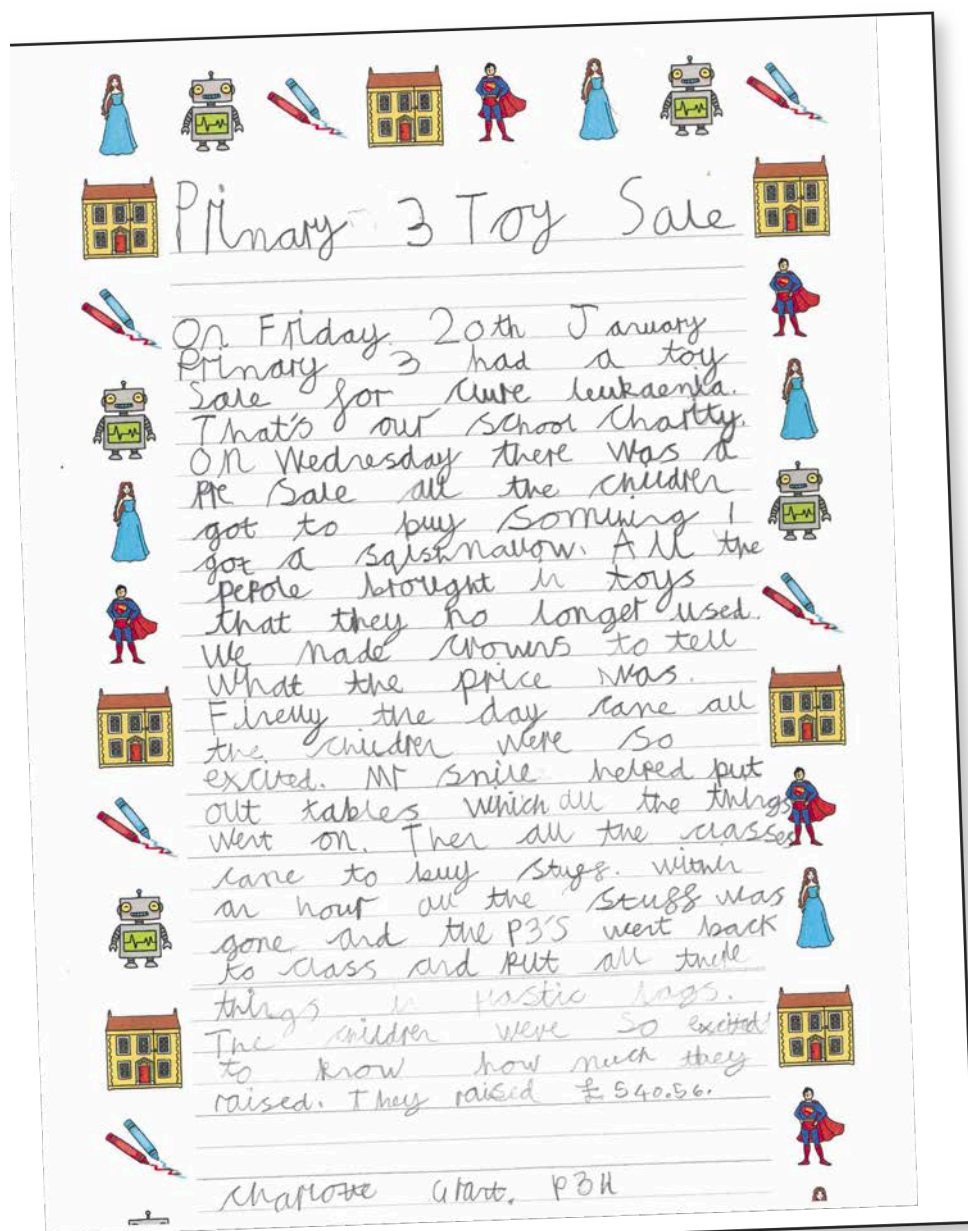 Primary 3 Toy Sale
On Friday 20th January
Primary 3 had a toy
Sale for Cure leukaemia.
That's our school Charity.
On Wednesday there was a
Pre Sale all the children
got to buy Somthing I
got a sqishmallow. All the
pepole brought in toys
that they no longer used.
We made crowns to tell
What the price was.
Finelly the day came all
the children were so
excited. Mr Smile helped put
out tables which all the things
went on. Then all the classes
came to buy stuff. within
an hour all the stuff was
gone and the P3'S went back
to class and put all there
things in plastic bags.
The children were so excited
to know how much they
raised. They raised £540.56.
Charlotte Grant. P3H